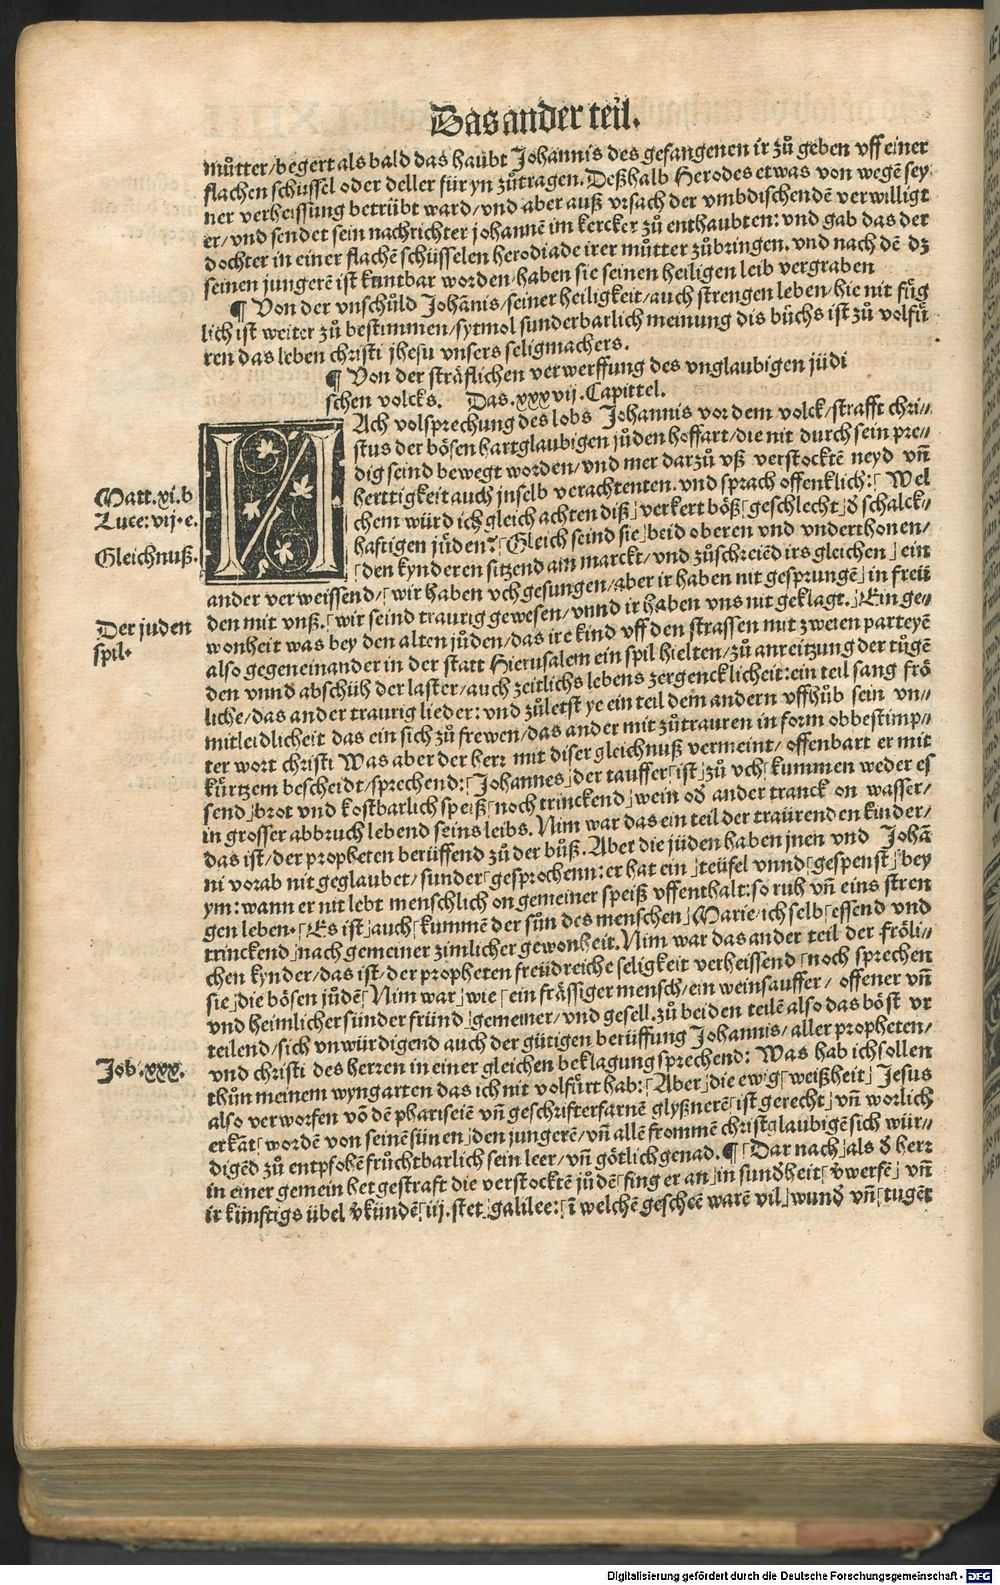 Das ander teil.
můtter/begert als bald das haubt Johannis des gefangenen ir zů geben vff einer
flachen schüssel oder deller für yn zůtragen. Deßhalb Herodes etwas von wegē sey
ner verheissung betrübt ward/vnd aber auß vrsach der vmbdischendē verwilligt
er/vnd sendet sein nachrichter johannē im kercker zů enthaubten: vnd gab das der
dochter in einer flachē schüsselen herodiade irer můtter zůbringen. vnd nach dē dz
seinen jungerē ist kuntbar worden/haben sie seinen heiligen leib vergraben
¶ Von der vnschůld Johānis/seiner heiligkeit/auch strengen leben/hie nit fůg
lich ist weiter zů bestimmen/sytmol sunderbarlich meinung dis bůchs ist zů volfů
ren das leben christi jhesu vnsers seligmachers.
¶ Von der sträflichen verwerffung des vnglaubigen jüdi
schen volcks. Das .xxxvij. Capittel.
NAch volsprechung des lobs Johannis vor dem volck/strafft chri//
stus der bösen hartglaubigen jůden hoffart/die nit durch sein pre//
dig seind bewegt worden/vnd mer darzů vß verstocktē neyd vn̄
Matt.xi.b herttigkeit auch jnselb verachtenten. vnd sprach offenklich: ⌈Wel
Luce:vij.e. chem würd ich gleich achten diß⌋ verkert böß⌈geschlecht⌋ d̄ schalck//
Gleichnuß. hafftigen jůden? ⌈Gleich seind sie⌋ beid oberen vnd vnderthonen/
⌈den kynderen sitzend am marckt/vnd zůschreiēd irs gleichen⌋ ein
ander verweissend/⌈wir haben vch gesungen/aber ir haben nit gesprungē⌋ in freü
Der juden den mit vnß. ⌈wir seind traurig gewesen/vnnd ir haben vns nit geklagt.⌋ Ein ge//
spil. wonheit was bey den alten jůden/das ire kind vff den strassen mit zweien parteyē
also gegeneinander in der statt Hierusalem ein spil hielten/zů anreitzung der tůgē
den vnnd abschüh der laster/auch zeitlichs lebens zergencklicheit: ein teil sang frö
liche/das ander traurig lieder: vnd zůletst ye ein teil dem andern vffhůb sein vn//
mitleidlicheit das ein sich zů frewen/das ander mit zůtrauren in form obbestimp//
ter wort christi Was aber der herr mit diser gleichnuß vermeint/ offenbart er mit
kůrtzem bescheidt/sprechend: ⌈Johannes⌋ der tauffer⌈ist⌋ zů vch⌈kummen weder es
send⌋ brot vnd kostbarlich speiß⌈noch trinckend⌋ wein od̄ ander tranck on wasser/
in grosser abbruch lebend seins leibs. Nim war das ein teil der traürenden kinder/
das ist/der propheten berüffend zů der bůß. Aber die jüden haben jnen vnd Johā
ni vorab nit geglaubet/sunder⌈gesprochenn: er hat ein⌋ teüfel vnnd⌈gespenst⌋ bey
ym: wann er nit lebt menschlich on gemeiner speiß vffenthalt: so ruh vn̄ eins stren
gen leben. ⌈Es ist⌋ auch⌈kummē der sůn des menschen⌋ Marie/ich selb⌈essend vnd
trinckend⌋ nach gemeiner zimlicher gewonheit. Nim war das ander teil der fröli//
chen kynder/das ist/der propheten freüdreiche seligkeit verheissend⌈noch sprechen
sie⌋ die bösen jůdē⌈Nim war⌋ wie⌈ein frässiger mensch/ein weinsauffer/ offener vn̄
vnd heimlicher sünder fründ⌋ gemeiner/vnd gesell. zů beiden teilē also das böst vr
teilend/sich vnwürdigend auch der gütigen berüffung Johannis/aller propheten/
Job.xxx. vnd christi des herren in einer gleichen beklagung sprechend: Was hab ich sollen
thůn meinem wyngarten das ich nit volfůrt hab: ⌈Aber⌋ die ewig⌈weißheit⌋ Jesus
also verworfen vō dē phariseiē vn̄ geschrifterfarnē glyßnerē⌈ist gerecht⌋ vn̄ worlich
erkāt⌈wordē von seinē sünen⌋ den jungerē/vn̄ allē frommē christglaubigē sich wür//
digēd zů entpfohē frůchtbarlich sein leer/vn̄ götlich genad. ¶ ⌈Dar nach⌋ als d̄ herr
in einer gemein het gestraft die verstocktē jüdē⌈fing er an⌋ in sund̄heit⌈v̄werfē⌋ vn̄
ir künftigs übel v̄kündē⌈iij. stet⌋ galilee: ⌈ī welchē gescheē warē vil⌋ wund̄ vn̄⌈tugēt
Digitalisierung gefördert durch die Deutsche Forschungsgemeinschaft - DFG